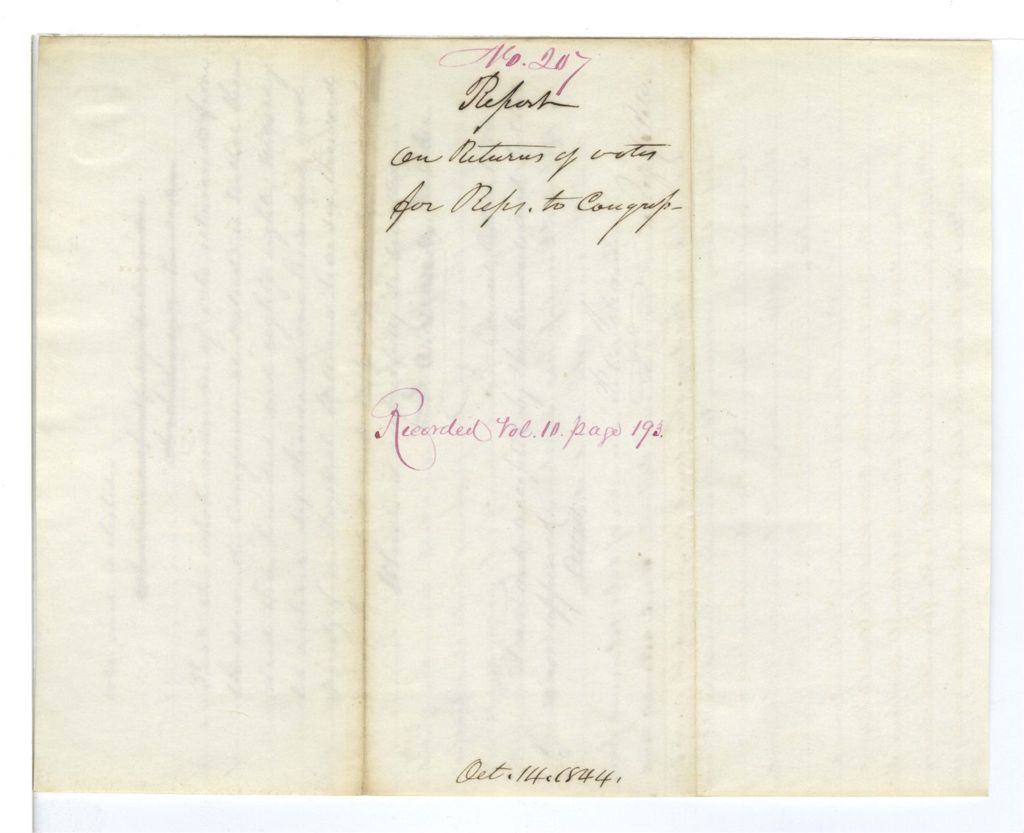 No. 207
Report
on Returns of votes
for Reps. to Congress
Recorded Vol. 10. page 193.
Oct. 14. 1844.